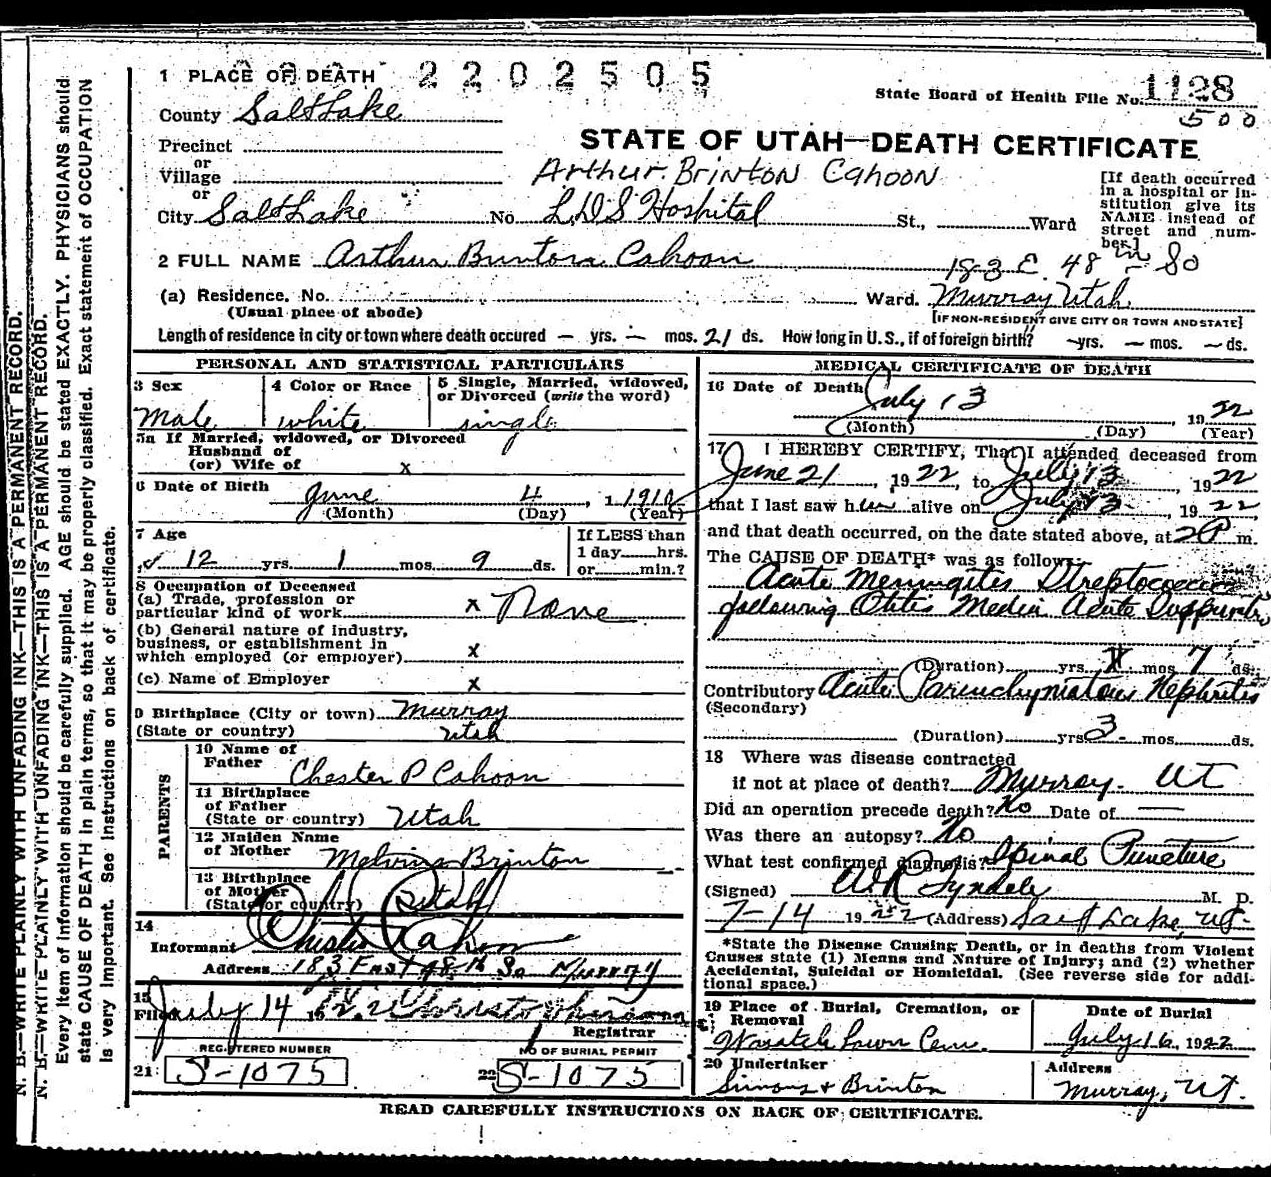 1 PLACE OF DEATH 2202505
State Board of Health File No. 1128
County Salt Lake
500
Precinct
STATE OF UTAH—DEATH CERTIFICATE
or
Village
Arthur Brinton Cahoon
[If death occurred in a hospital or institution give its NAME instead of street and number.]
or
City Salt Lake No. L.D.S Hospital St., Ward
2 FULL NAME Arthur Brinton Cahoon
183 E. 48 - So
(a) Residence. No. Ward. Murray Utah.
(Usual place of abode) [IF NON-RESIDENT GIVE CITY OR TOWN AND STATE]
Length of residence in city or town where death occured — yrs. — mos. 21 ds. How long in U.S., if of foreign birth? — yrs. — mos. — ds.
PERSONAL AND STATISTICAL PARTICULARS
3 Sex
Male
4 Color or Race
white
5 Single, Married, widowed, or Divorced (write the word)
single
5a If Married, widowed, or Divorced
Husband of
(or) Wife of x
6 Date of Birth June 4, 1910
(Month) (Day) (Year)
7 Age
12 yrs. 1 mos. 9 ds.
If LESS than
1 day......hrs.
or......min.?
8 Occupation of Deceased
(a) Trade, profession or
particular kind of work x None
(b) General nature of industry,
business, or establishment in
which employed (or employer) x
(c) Name of Employer x
9 Birthplace (City or town) Murray
(State or country) Utah
PARENTS
10 Name of
Father Chester P Cahoon
11 Birthplace
of Father
(State or country) Utah
12 Maiden Name
of Mother Melvina Brinton
13 Birthplace
of Mother
(State or country) Utah
14
Informant Chester P Cahoon
Address 183 East 48th So Murray
15
Filed July 14 19
Registrar
REGISTERED NUMBER
21: S-1075
NO OF BURIAL PERMIT
22 S-1075
MEDICAL CERTIFICATE OF DEATH
16 Date of Death July 13, 1922
(Month) (Day) (Year)
17 I HEREBY CERTIFY, That I attended deceased from
June 21, 1922, to July 13, 1922
that I last saw him alive on July 13, 1922
and that death occurred, on the date stated above, at 2 P m.
The CAUSE OF DEATH* was as follows:
Acute Meningites Streptococcic
following Otitis Media Acute
(Duration) yrs. mos. 7 ds.
Contributory Acute Parenchymatous Nephritis
(Secondary)
(Duration) yrs 3 mos. ds.
18 Where was disease contracted
if not at place of death? Murray. UT
Did an operation precede death? No Date of —
Was there an autopsy? No
What test confirmed diagnosis? Spinal Puncture
(Signed) M. D.
7-14 1922 (Address) Salt Lake, UT.
*State the Disease Causing Death, or in deaths from Violent
Causes state (1) Means and Nature of Injury; and (2) whether
Accidental, Suicidal or Homicidal. (See reverse side for additional space.)
19 Place of Burial, Cremation, or
Removal
Wasatch Lawn Cem.
Date of Burial
July 16, 1922
20 Undertaker
Simons & Brinton
Address
Murray, UT.
READ CAREFULLY INSTRUCTIONS ON BACK OF CERTIFICATE.
N. B.—WRITE PLAINLY WITH UNFADING INK—THIS IS A PERMANENT RECORD.
N. B.—WRITE PLAINLY WITH UNFADING INK—THIS IS A PERMANENT RECORD.
Every item of information should be carefully supplied. AGE should be stated EXACTLY. PHYSICIANS should
state CAUSE OF DEATH in plain terms, so that it may be properly classified. Exact statement of OCCUPATION
is very important. See instructions on back of certificate.